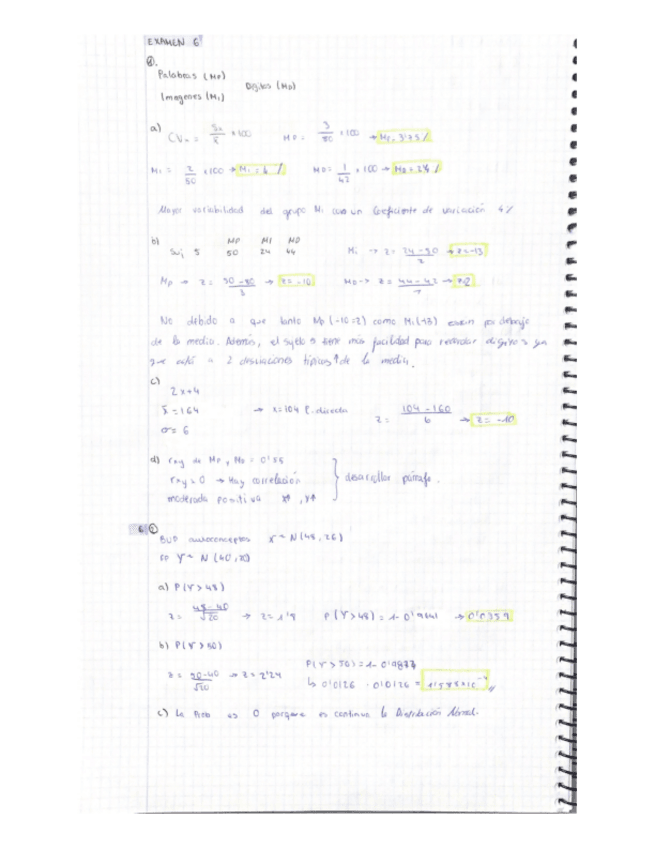 EXAMEN 6
①.
Palabras (Mp)
Dígitos (MD)
Imagenes (Mi)
a) CVx = Sx/x̄ × 100 MP = 3/80 × 100 → Mp = 3'75 %
Mi = 2/50 × 100 → Mi = 4 % MD = 1/42 × 100 → MD = 2'4 %
Mayor variabilidad del grupo Mi con un Coeficiente de Variación 4%
b) MP MI MD
Suj 5 50 24 44
Mi → z = 24-50/2 → z = -13
Mp → z = 50-80/3 → z = -10 MD → z = 44-42/1 → z=2
No debido a que tanto Mp (-10=z) como Mi (-13) están por debajo
de la media. Además, el sujeto 5 tiene más facilidad para recordar dígitos ya
que está a 2 desviaciones típicas ↑ de la media.
c)
2x+4
x̄ = 164 → x=104 P. directa z = 104-160/6 → z = -10
σ = 6
d) rxy de MP, MD = 0'55
rxy > 0 → Hay correlación desarrollar párrafo.
moderada positiva x↑, y↑
6 ②
autoconceptos X ~ N(48, 26)
Y ~ N (40, 20)
a) P(Y > 48)
z = 48-40/√20 → z = 1'8 P(Y > 48) = 1- 0'9641 → 0'0359
b) P(Y > 50)
z = 50-40/√20 → z = 2'24
P(Y > 50) = 1-
↳ 0'0126 · 0'0126 = 1'588×10⁻⁴
c) La es 0 porque es continua la Distribución Normal.